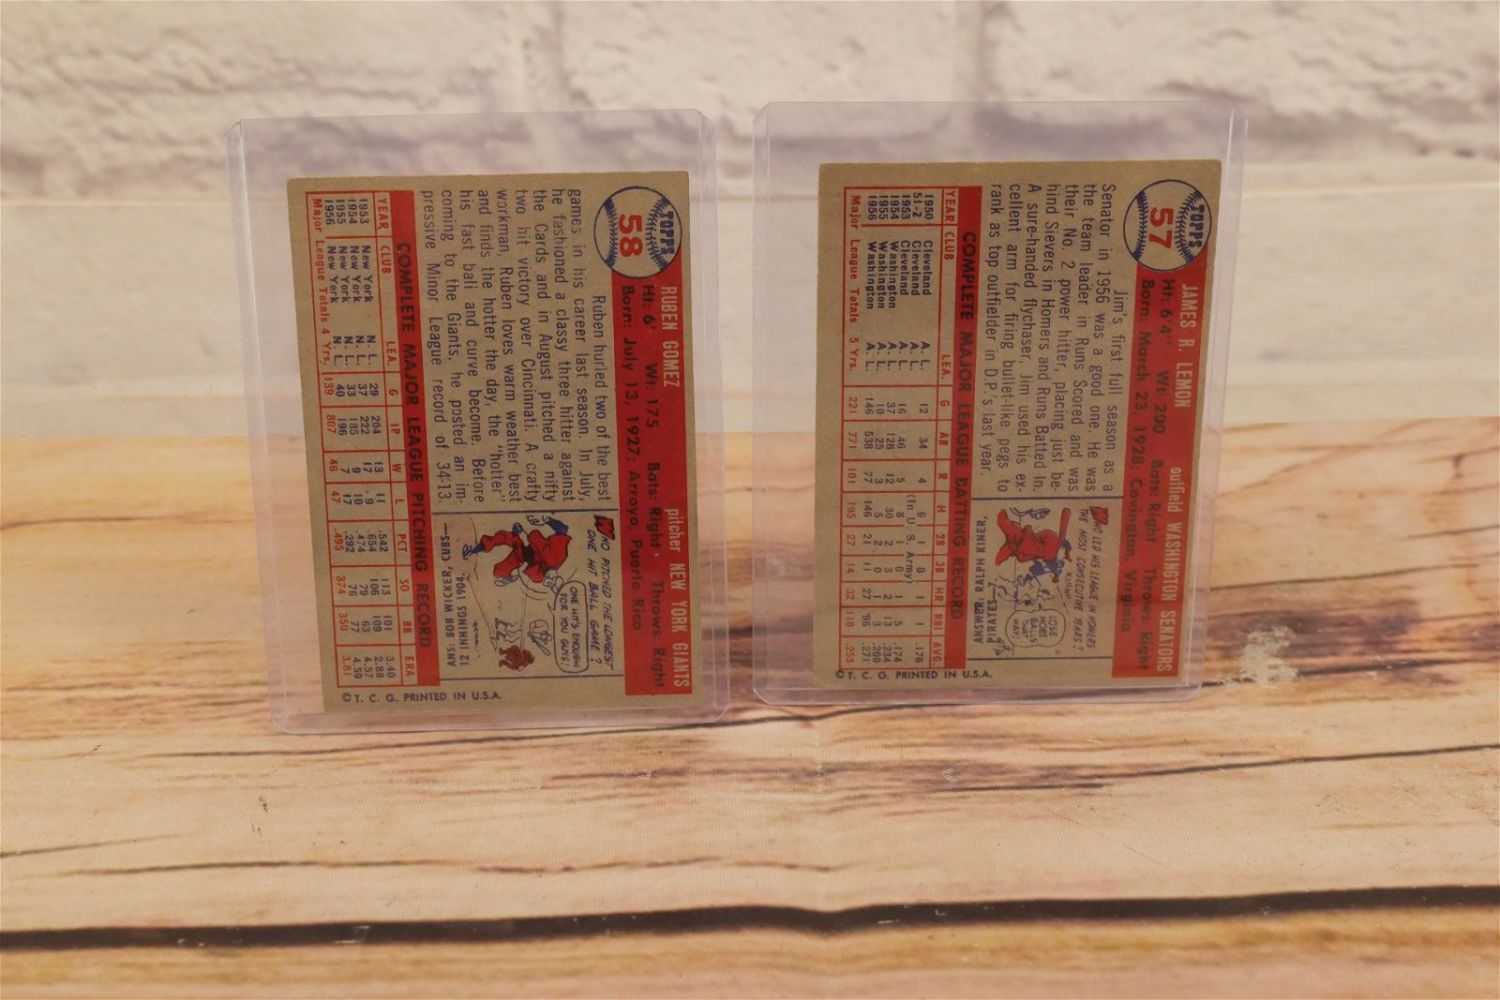 TOPPS
58
RUBEN GOMEZ pitcher NEW YORK GIANTS
Ht: 6' Wt: 175 Bats: Right Throws: Right
Born: July 13, 1927; Arroyo, Puerto Rico
Ruben hurled two of the best
games in his career last season. In July,
he fashioned a classy three hitter against
the Cards and in August pitched a nifty
two hit victory over Cincinnati. A crafty
workman, Ruben loves warm weather best
and finds the hotter the day, the "hotter"
his fast ball and curve become. Before
coming to the Giants, he posted an im-
pressive Minor League record of 34-13.
WHO PITCHED THE LONGEST
ONE HIT BALL GAME?
ONE HIT'S ENOUGH
FOR YOU GUYS!
ANS: BOB WICKER, CUBS—
12 INNINGS 1904.
COMPLETE MAJOR LEAGUE PITCHING RECORD
YEAR CLUB LEA. G IP W L PCT SO BB ERA
1953 New York N. L. 29 204 13 11 .542 113 101 3.40
1954 New York N. L. 37 222 17 9 .654 106 109 2.88
1955 New York N. L. 33 185 9 10 .474 79 63 4.59
1956 New York N. L. 40 196 7 17 .292 76 77 4.59
Major League Totals 4 Yrs. 139 807 46 47 .495 374 350 3.81
© T. C. G. PRINTED IN U.S.A.
TOPPS
57
JAMES R. LEMON outfield WASHINGTON SENATORS
Ht: 6'4" Wt: 200 Bats: Right Throws: Right
Born: March 23, 1928; Covington, Virginia
Jim's first full season as a
Senator in 1956 was a good one. He was
the team leader in Runs Scored and was
their No. 2 power hitter, placing just be-
hind Sievers in Homers and Runs Batted In.
A sure-handed flychaser, Jim used his ex-
cellent arm for firing bullet-like pegs to
rank as top outfielder in D.P.'s last year.
WHO LED HIS LEAGUE IN HOMERS
THE MOST CONSECUTIVE YEARS?
LOSE
MORE
BALLS
THAT
WAY!
ANSWER: RALPH KINER,
PIRATES—7
COMPLETE MAJOR LEAGUE BATTING RECORD
YEAR CLUB LEA. G AB R H 2B 3B HR RBI AVG.
1950 Cleveland A. L. 12 34 4 6 1 0 1 1 .176
51-2 Cleveland (In U. S. Army)
1953 Cleveland A. L. 16 46 5 8 1 0 1 5 .174
1954 Washington A. L. 37 128 12 30 2 3 2 13 .234
1955 Washington A. L. 10 25 3 5 2 0 1 3 .200
1956 Washington A. L. 146 538 77 146 21 11 27 96 .271
Major League Totals 5 Yrs. 221 771 101 195 27 14 32 118 .253
© T. C. G. PRINTED IN U.S.A.